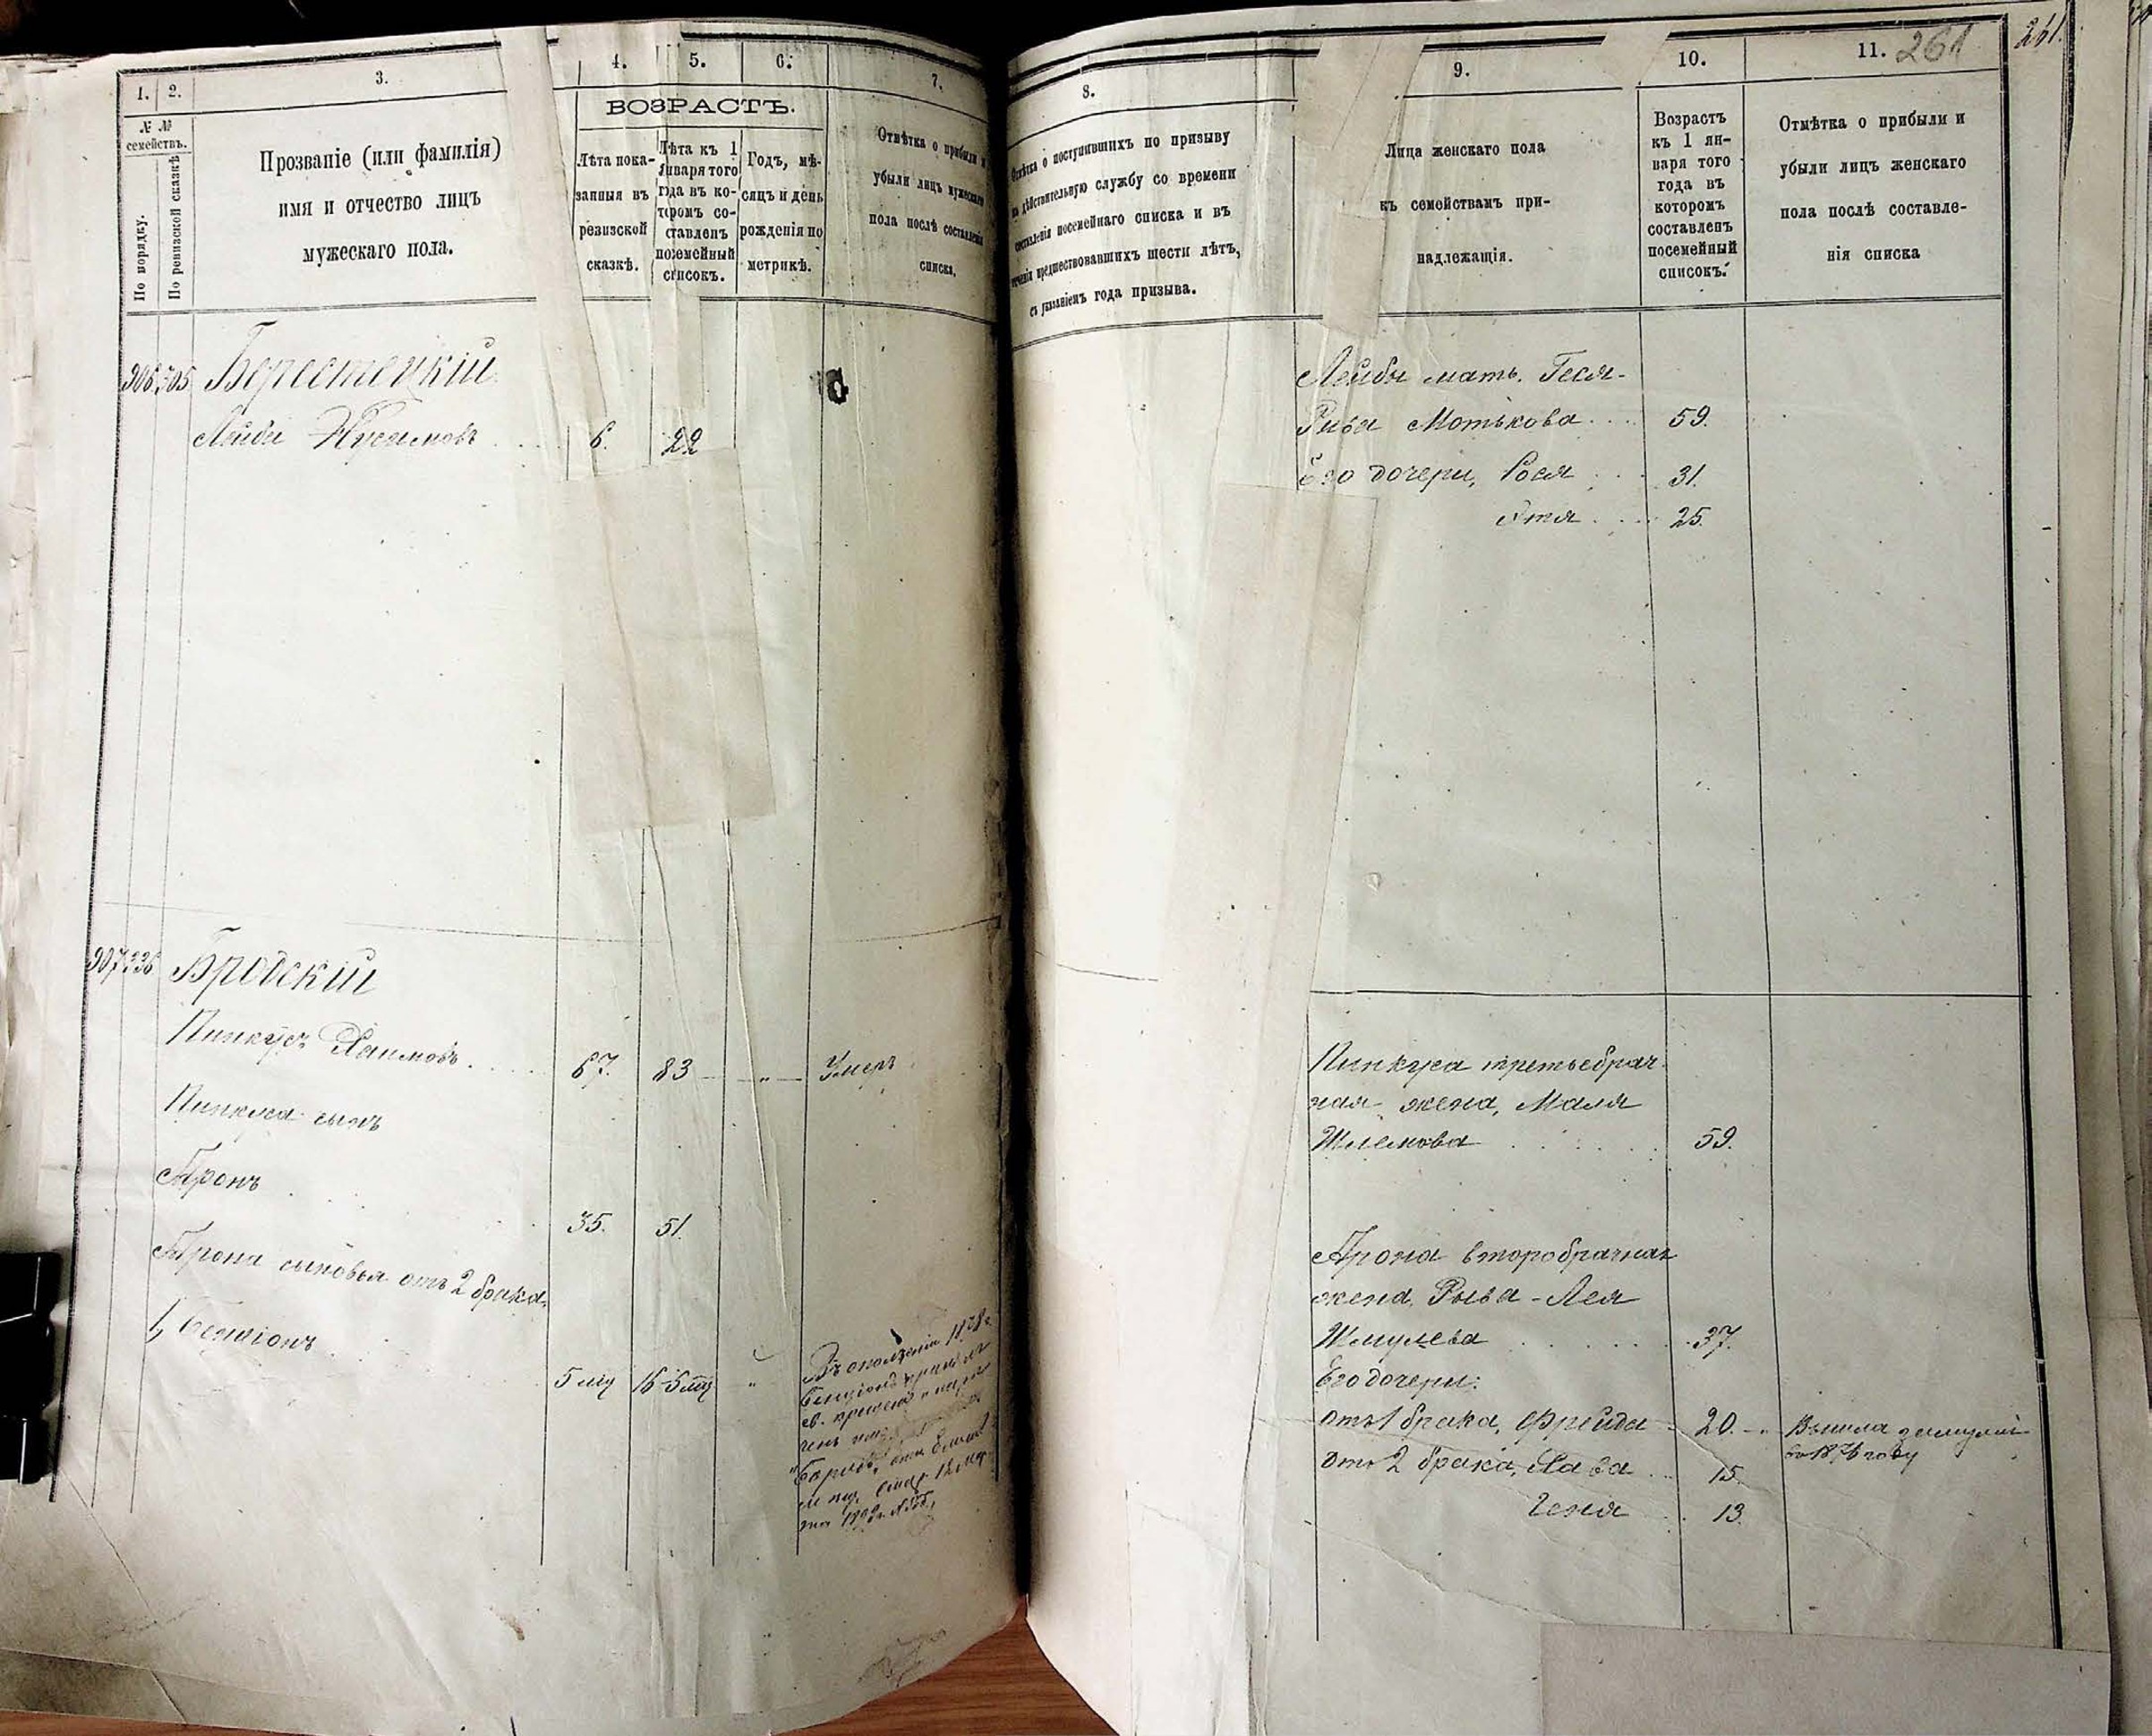 1.
2.
3.
4.
5.
6.
7.
№ №
семействъ.
По порядку.
По ревизской сказкѣ
Прозваніе (или фамилія)
имя и отчество лицъ
мужескаго пола.
ВОЗРАСТЪ.
Лѣта пока-
занныя въ
ревизской
сказкѣ.
Лѣта къ 1
января того
года въ ко-
торомъ со-
ставленъ
посемейный
списокъ.
Годъ, мѣ-
сяцъ и день
рожденія по
метрикѣ.
Отмѣтка о прибыли и
убыли лицъ мужескаго
пола послѣ составленія
списка.
906 305 Берестецкій
Лейба Нусимовъ 6. 22
907 336 Бродскій
Пинкусъ Хаимовъ 67. 83 „ Умеръ
Пинкуса сынъ
Аронъ
35. 51.
Арона сыновья отъ 2 брака.
1, Бенціонъ
5 мц 16-5 мц „
Въ ополченіи 1878 г.
Бенціонъ принялъ
св. крещеніе и наре-
ченъ
261
261.
8.
9.
10.
11.
Отмѣтка о поступившихъ по призыву
на дѣйствительную службу со времени
составленія посемейнаго списка и въ
теченіи предшествовавшихъ шести лѣтъ,
съ указаніемъ года призыва.
Лица женскаго пола
къ семействамъ при-
надлежащія.
Возрастъ
къ 1 ян-
варя того
года въ
котором­ъ
составленъ
посемейный
списокъ.
Отмѣтка о прибыли и
убыли лицъ женскаго
пола послѣ составле-
нія списка
Лейбы мать. Геся-
Рива Мотькова 59.
Его дочери, Рося 31.
Этя 25.
Пинкуса третьебрач-
ная жена, Маля
Шлемова 59.
Арона второбрачная
жена, Рыва-Лея
Шмулева 37.
Его дочери:
отъ 1 брака, Фрейда 20. „ Вышла замужъ
въ 1876 году
отъ 2 брака, Хава 15.
Геня 13.